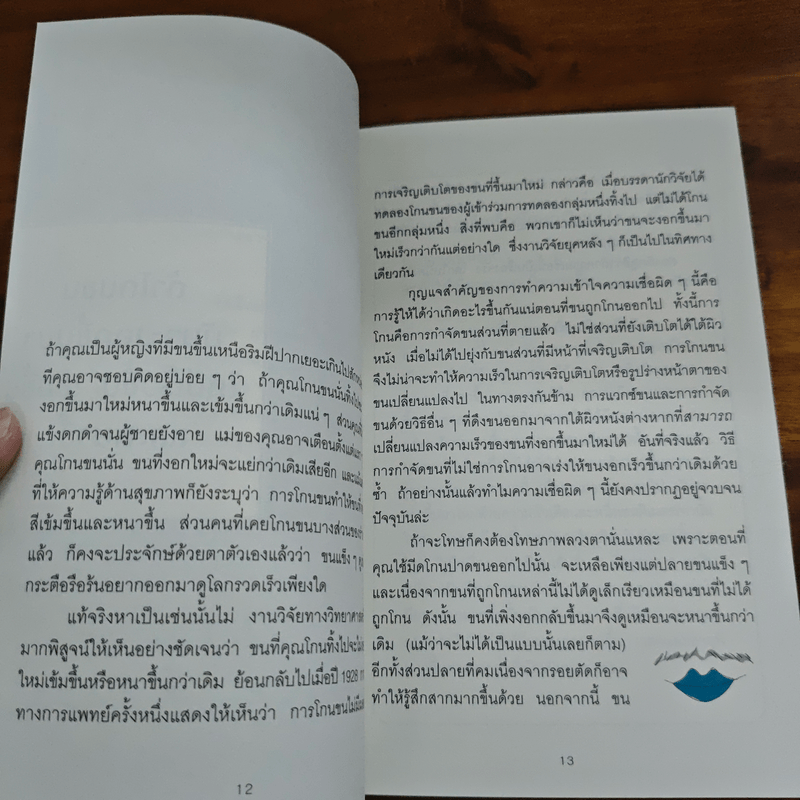 ถ้าคุณเป็นผู้หญิงที่มีขนขึ้นเหนือริมฝีปากเยอะเกินไป
ทีคุณอาจชอบคิดอยู่บ่อย ๆ ว่า ถ้าคุณโกนขนนั่นทิ้ง
งอกขึ้นมาใหม่หนาขึ้นและเข้มขึ้นกว่าเดิมแน่ ๆ ส่วน
แข้งดกดำจนผู้ชายยังอาย แม่ของคุณอาจเตือนตั้งแต่
คุณโกนขนนั่น ขนที่งอกใหม่จะแย่กว่าเดิมเสียอีก
ที่ให้ความรู้ด้านสุขภาพก็ยังระบุว่า การโกนขนทำให้
สีเข้มขึ้นและหนาขึ้น ส่วนคนที่เคยโกนขนบางส่วน
แล้ว ก็คงจะประจักษ์ด้วยตาตัวเองแล้วว่า ขนแข็ง ๆ
กระตือรือร้นอยากออกมาดูโลกรวดเร็วเพียงใด
แท้จริงหาเป็นเช่นนั้นไม่ งานวิจัยทางวิทยาศาสตร์
มากพิสูจน์ให้เห็นอย่างชัดเจนว่า ขนที่คุณโกนทิ้งไป
ใหม่เข้มขึ้นหรือหนาขึ้นกว่าเดิม ย้อนกลับไปเมื่อปี 1928
ทางการแพทย์ครั้งหนึ่งแสดงให้เห็นว่า การโกนขน
12
การเจริญเติบโตของขนที่ขึ้นมาใหม่ กล่าวคือ เมื่อบรรดานักวิจัยได้
ทดลองโกนขนของผู้เข้าร่วมการทดลองกลุ่มหนึ่งทิ้งไป แต่ไม่ได้โกน
ขนอีกกลุ่มหนึ่ง สิ่งที่พบคือ พวกเขาก็ไม่เห็นว่าขนจะงอกขึ้นมา
ใหม่เร็วกว่ากันแต่อย่างใด ซึ่งงานวิจัยยุคหลัง ๆ ก็เป็นไปในทิศทาง
เดียวกัน
กุญแจสำคัญของการทำความเข้าใจความเชื่อผิด ๆ นี้คือ
การรู้ให้ได้ว่าเกิดอะไรขึ้นกันแน่ตอนที่ขนถูกโกนออกไป ทั้งนี้การ
โกนคือการกำจัดขนส่วนที่ตายแล้ว ไม่ใช่ส่วนที่ยังเติบโตได้ใต้ผิว
หนัง เมื่อไม่ได้ไปยุ่งกับขนส่วนที่มีหน้าที่เจริญเติบโต การโกนขน
จึงไม่น่าจะทำให้ความเร็วในการเจริญเติบโตหรือรูปร่างหน้าตาของ
ขนเปลี่ยนแปลงไป ในทางตรงกันข้าม การแวกซ์ขนและการกำจัด
ขนด้วยวิธีอื่น ๆ ที่ดึงขนออกมาจากใต้ผิวหนังต่างหากที่สามารถ
เปลี่ยนแปลงความเร็วของขนที่งอกขึ้นมาใหม่ได้ อันที่จริงแล้ว วิธี
การกำจัดขนที่ไม่ใช่การโกนอาจเร่งให้ขนงอกเร็วขึ้นกว่าเดิมด้วย
ซ้ำ ถ้าอย่างนั้นแล้วทำไมความเชื่อผิด ๆ นี้ยังคงปรากฏอยู่จวบจน
ปัจจุบันล่ะ
ถ้าจะโทษก็คงต้องโทษภาพลวงตานั่นแหละ เพราะตอนที่
คุณใช้มีดโกนปาดขนออกไปนั้น จะเหลือเพียงแต่ปลายขนแข็ง ๆ
และเนื่องจากขนที่ถูกโกนเหล่านี้ไม่ได้ดูเล็กเรียวเหมือนขนที่ไม่ได้
ถูกโกน ดังนั้น ขนที่เพิ่งงอกกลับขึ้นมาจึงดูเหมือนจะหนาขึ้นกว่า
เดิม (แม้ว่าจะไม่ได้เป็นแบบนั้นเลยก็ตาม)
อีกทั้งส่วนปลายที่คมเนื่องจากรอยตัดก็อาจ
ทำให้รู้สึกสากมากขึ้นด้วย นอกจากนี้ ขน
13